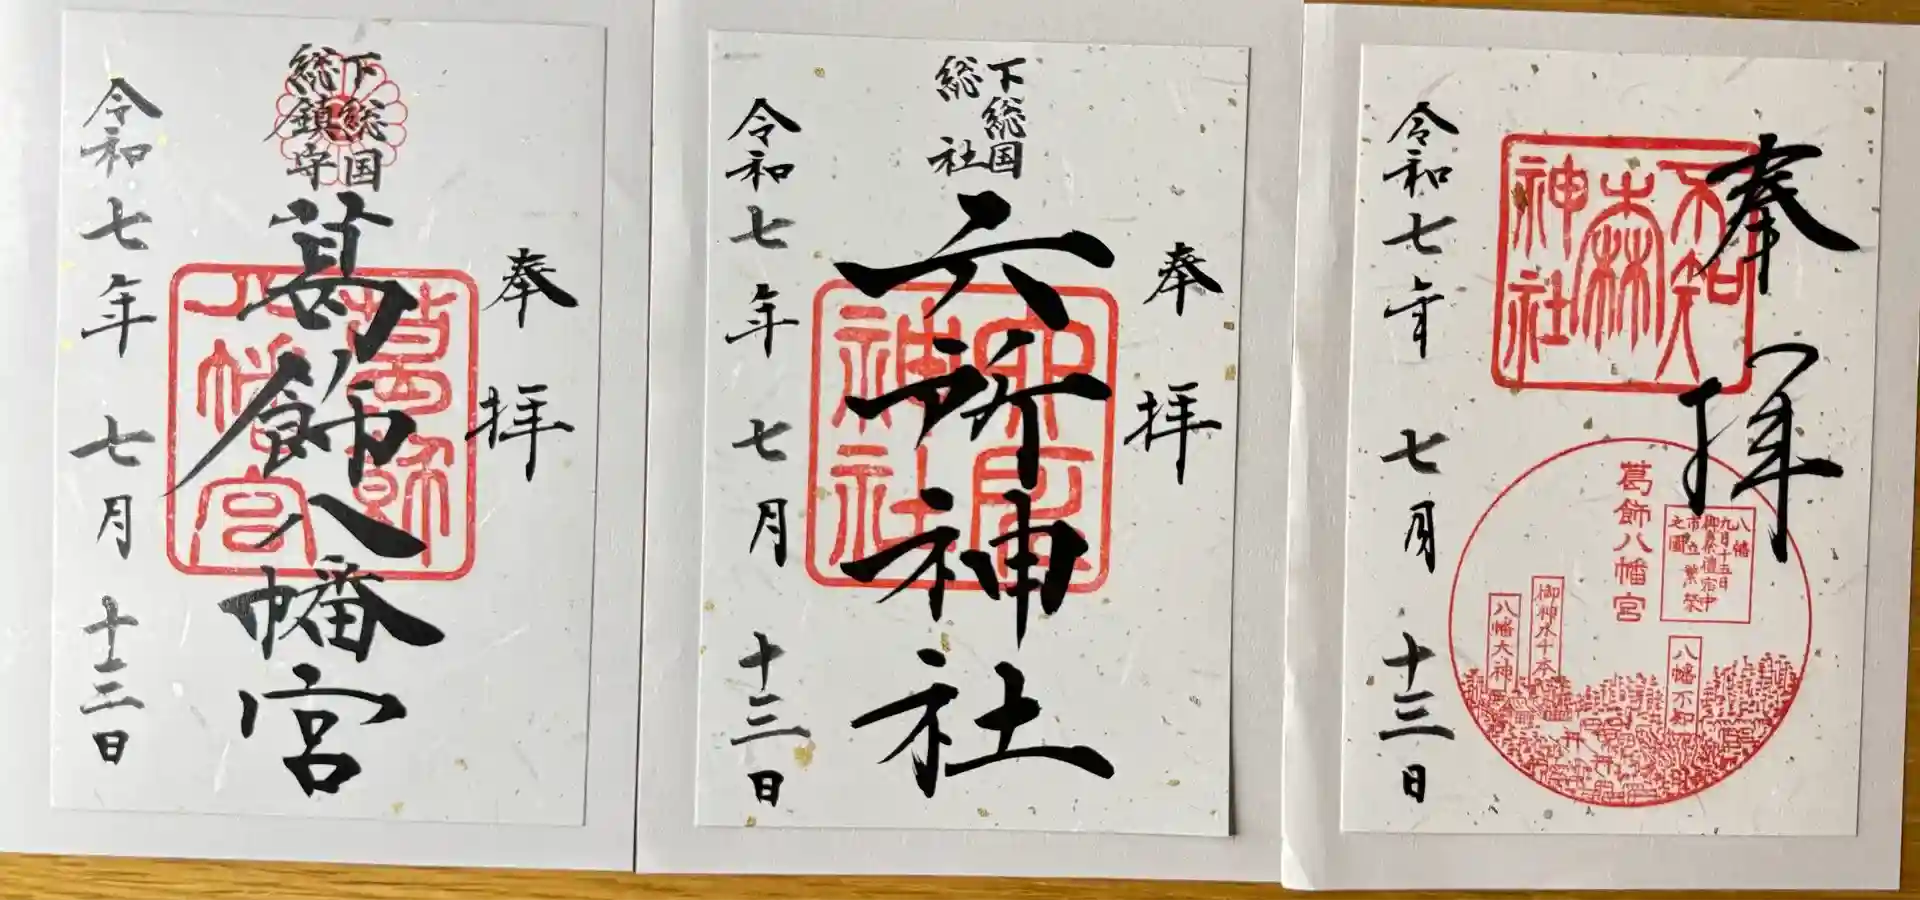 奉拝
下総国
総鎮守
葛飾八幡宮
葛飾
八幡宮
令和七年七月十三日
奉拝
下総国
総社
六所神社
六所
神社
令和七年七月十三日
奉拝
不知
森
神社
葛飾八幡宮
八幡
九月十五日
市立繁栄
之圖
八幡不知
御神水千本
八幡大神
令和七年七月十三日